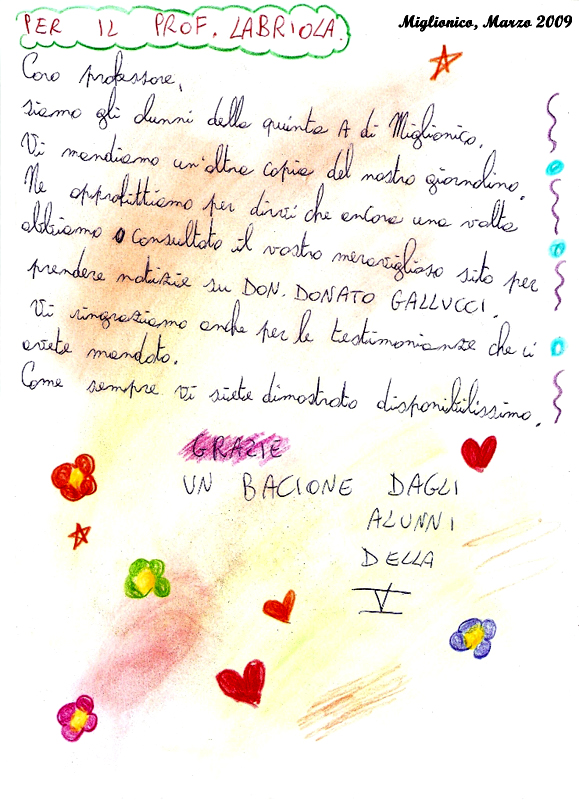 PER IL PROF. LABRIOLA.
Miglionico, Marzo 2009
Caro professore,
siamo gli alunni della quinta A di Miglionico.
Vi mandiamo un'altra copia del nostro giornalino.
Ne approfittiamo per dirvi che ancora una volta
abbiamo consultato il vostro meraviglioso sito per
prendere notizie su DON. DONATO GALLUCCI.
Vi ringraziamo anche per le testimonianze che ci
avete mandato.
Come sempre vi siete dimostrato disponibilissimo.
GRAZIE
UN BACIONE DAGLI
ALUNNI
DELLA
V